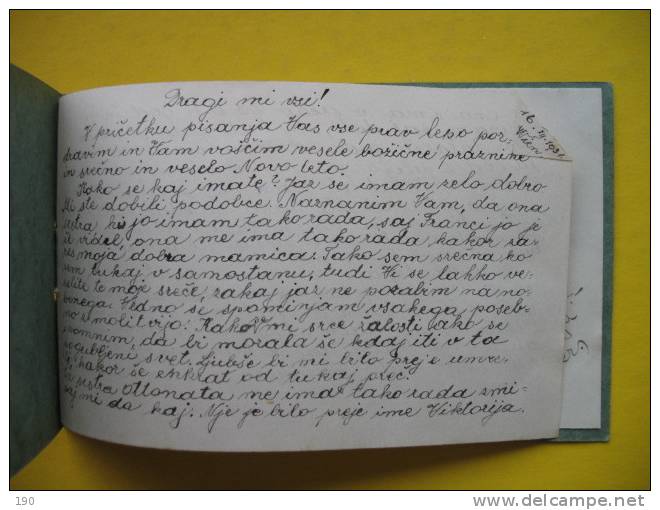 Dragi mi vsi!
V pričetku pisanja Vas vse prav lepo poz-
dravim in Vam voščim vesele božične praznike
in srečno in veselo Novo leto.
Kako se kaj imate? Jaz se imam zelo dobro
ste dobili podobce. Naznanim Vam, da ona
sestra ki jo imam tako rada, saj Franci jo je
videl, ona me ima tako rada, kakor za-
res moja dobra mamica. Tako sem srečna ko
sem tukaj v samostanu, tudi Vi se lahko ve-
selite te moje sreče, zakaj jaz ne pozabim na no-
benega. Vedno se spominjam vsakega poseb-
no v molitvijo. Kako mi srce žalosti ako se
spomnim, da bi morala še kdaj iti v ta
pogubljeni svet. Ljubše bi mi bilo preje umre-
ti kakor še enkrat od tukaj preč.
sestra Ottonata me ima tako rada zmi-
raj mi da kaj. Nje je bilo preje ime Viktorija.
16.
Wien
190
www.delcampe.net